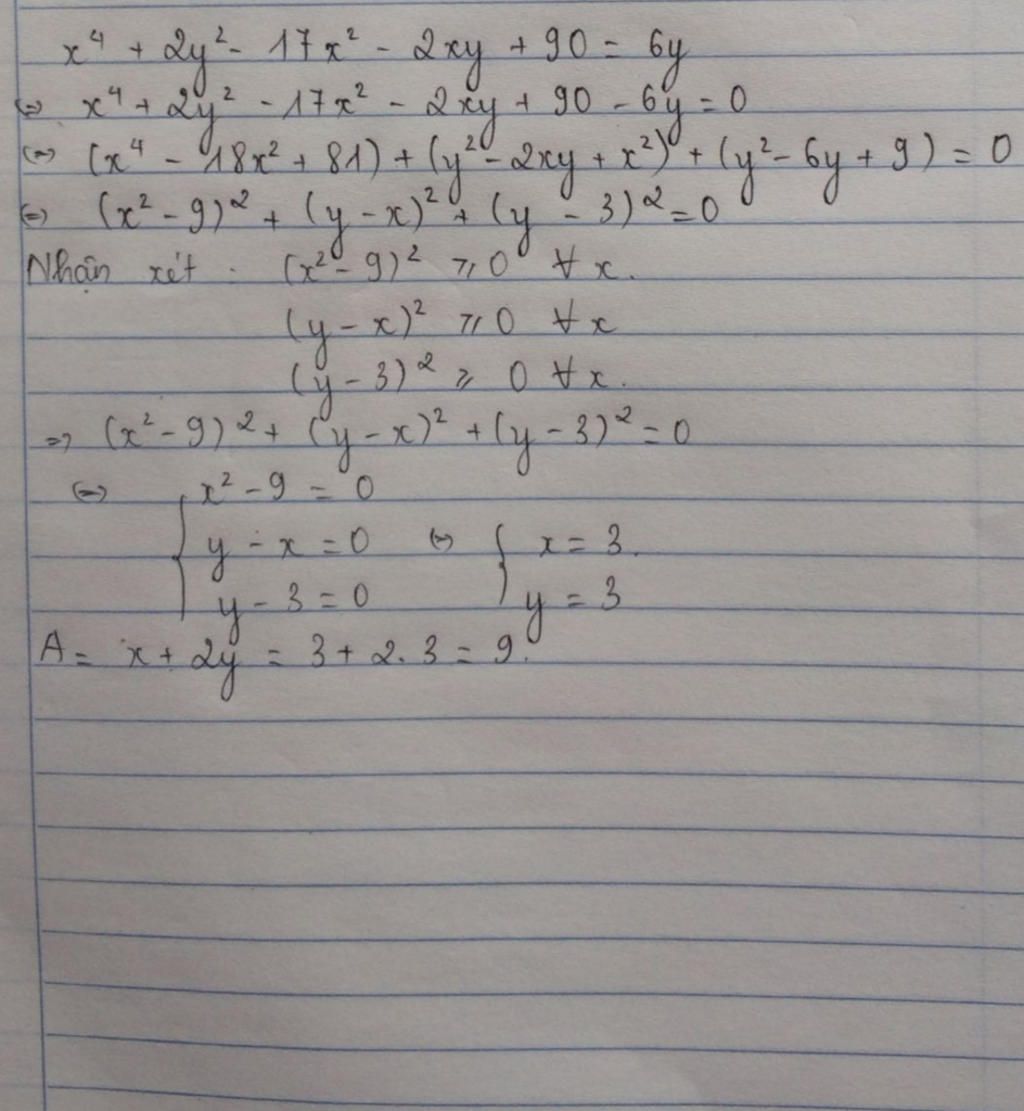 x⁴ + 2y² - 17x² - 2xy + 90 = 6y
⇔ x⁴ + 2y² - 17x² - 2xy + 90 - 6y = 0
⇔ (x⁴ - 18x² + 81) + (y² - 2xy + x²) + (y² - 6y + 9) = 0
⇔ (x² - 9)² + (y - x)² + (y - 3)² = 0
Nhận xét. (x² - 9)² ⩾ 0 ∀ x.
(y - x)² ⩾ 0 ∀ x
(y - 3)² ⩾ 0 ∀ x.
=> (x² - 9)² + (y - x)² + (y - 3)² = 0
⇔ { x² - 9 = 0
y - x = 0 ⇔ { x = 3.
y - 3 = 0 y = 3
A = x + 2y = 3 + 2.3 = 9.